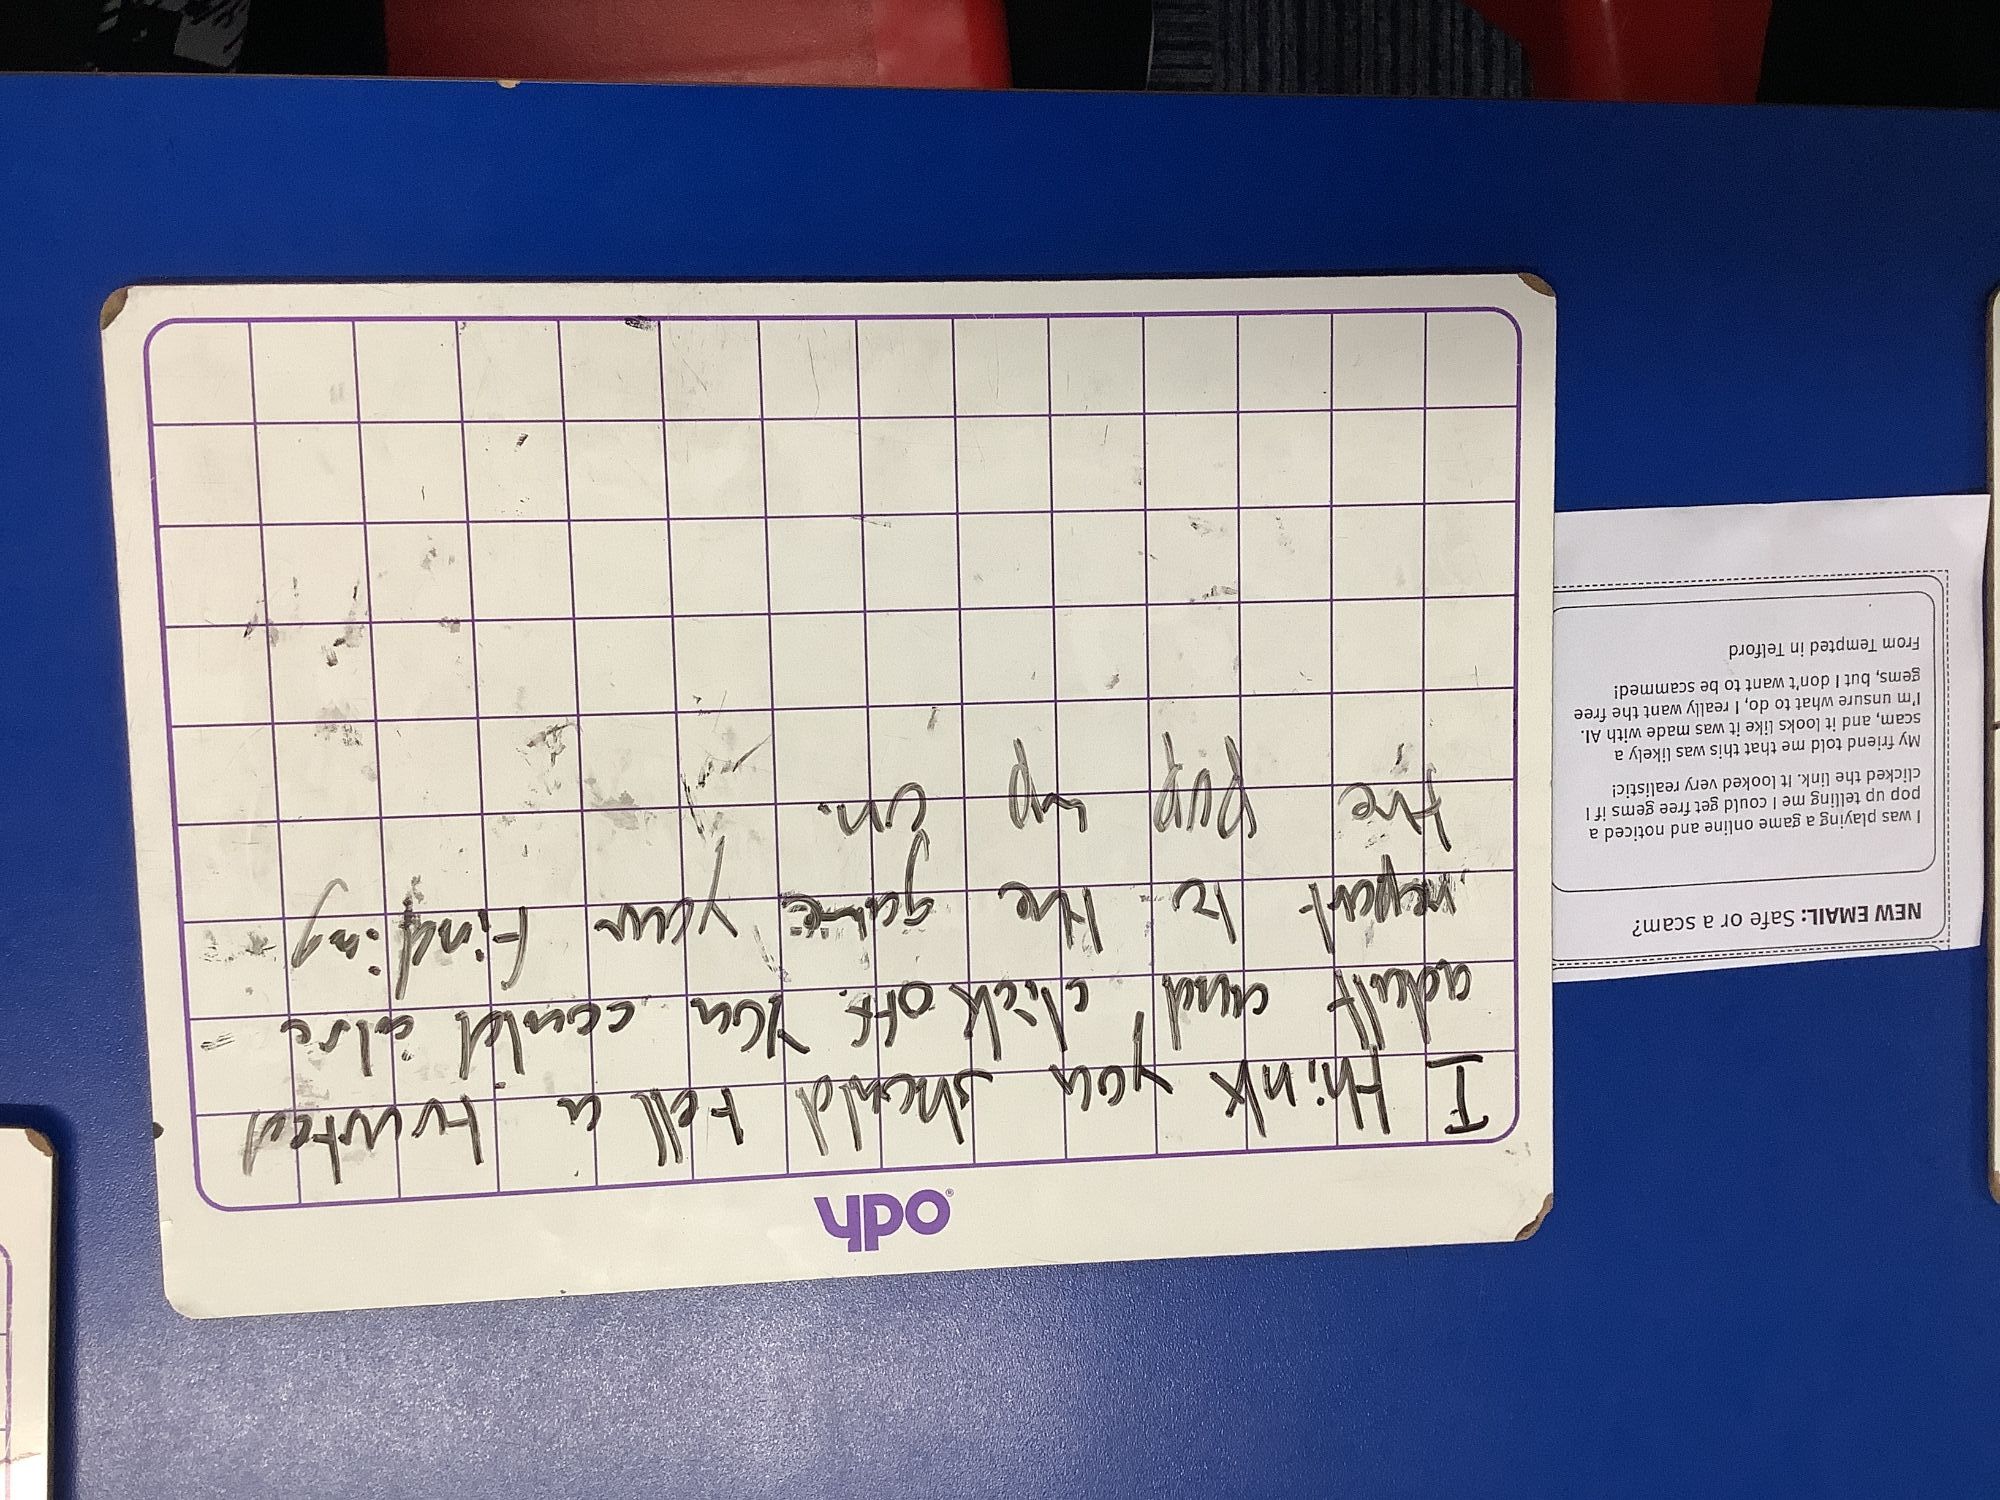 ypo
I think you should tell a trusted
adult and click off. You could also
report to the game your finding
the pup up on.
NEW EMAIL: Safe or a scam?
I was playing a game online and noticed a
pop up telling me I could get free gems if I
clicked the link. It looked very realistic!
My friend told me that this was likely a
scam, and it looks like it was made with AI.
I'm unsure what to do, I really want the free
gems, but I don't want to be scammed!
From Tempted in Telford